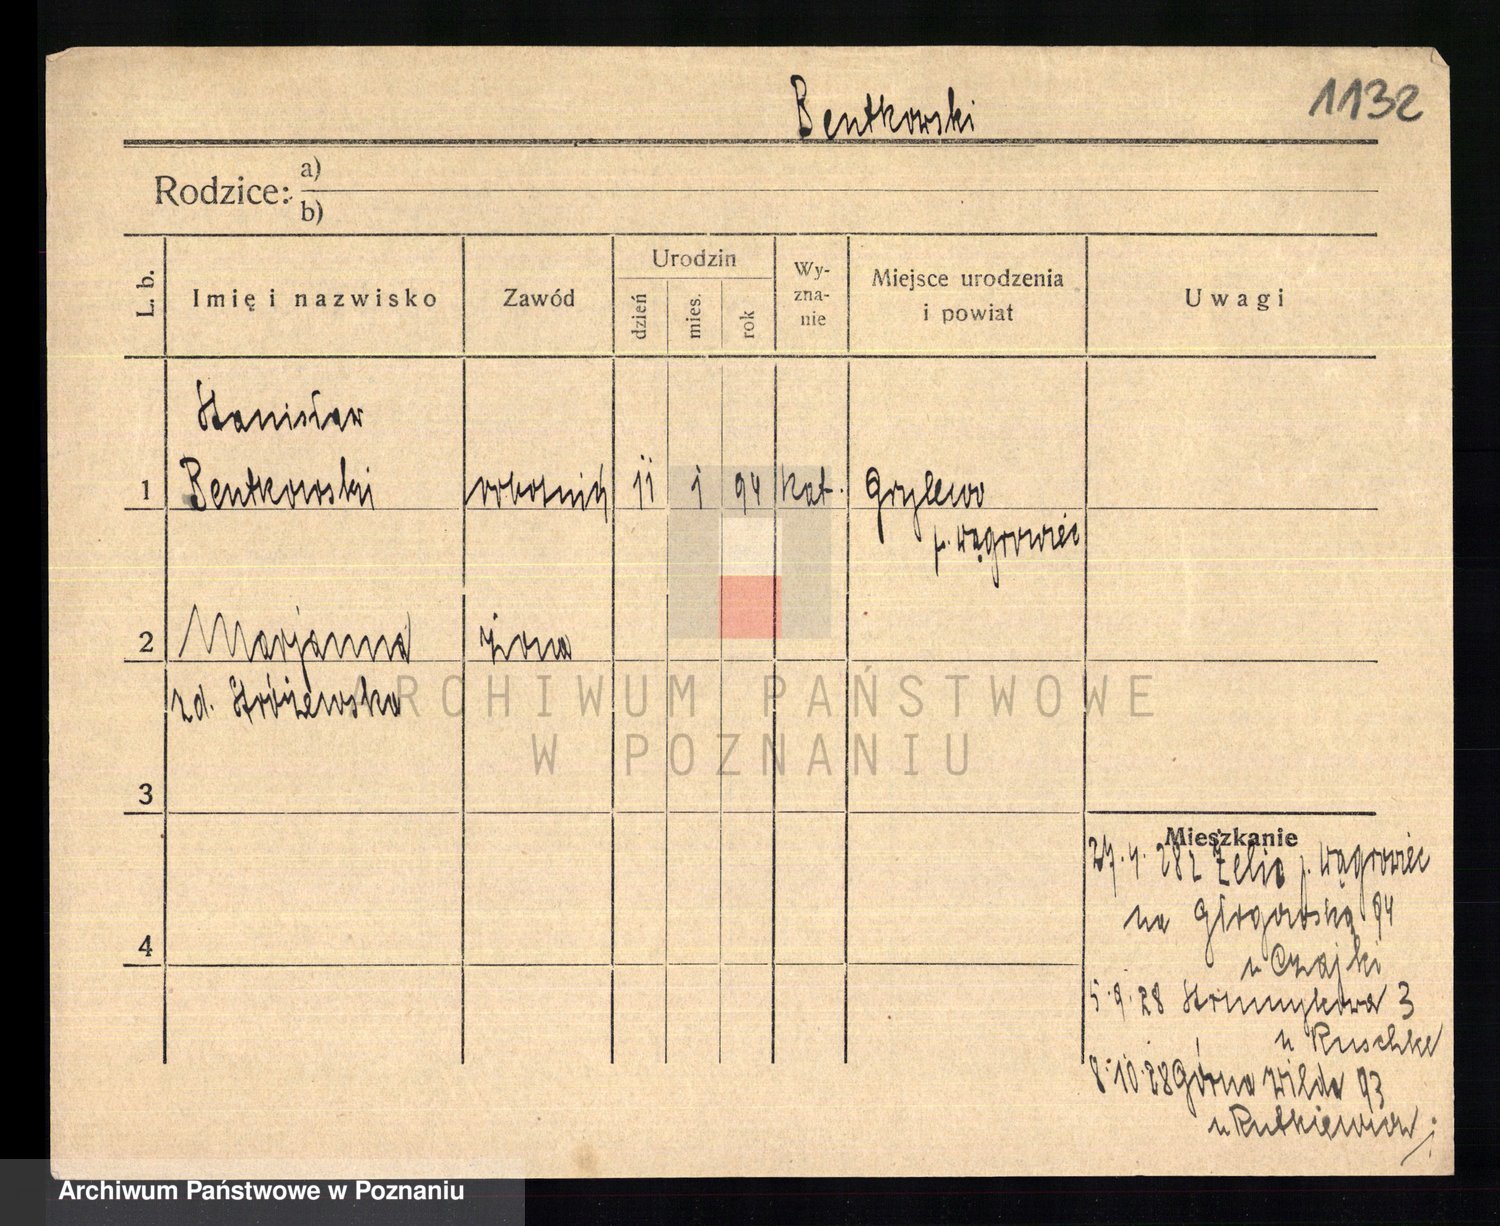 Bentkowski
1132
Rodzice:
a)
b)
L. b.
Imię i nazwisko
Zawód
Urodzin
dzień
mies.
rok
Wy-
zna-
nie
Miejsce urodzenia
i powiat
Uwagi
Stanisław
1 Bentkowski robotnik 11 1 94 kat. Grylewo
p. Wągrowiec
2 Marjanna żona
zd. Stróżewska
3
4
Mieszkanie
27.4.28 z Żelic p. Wągrowiec
na Głogowską 94
u Czajki
5.9.28 Strumykowa 3
u Ruschke
8.10.28 Górna Wilda 93
u Rutkiewicza
ARCHIWUM PAŃSTWOWE
W POZNANIU
Archiwum Państwowe w Poznaniu